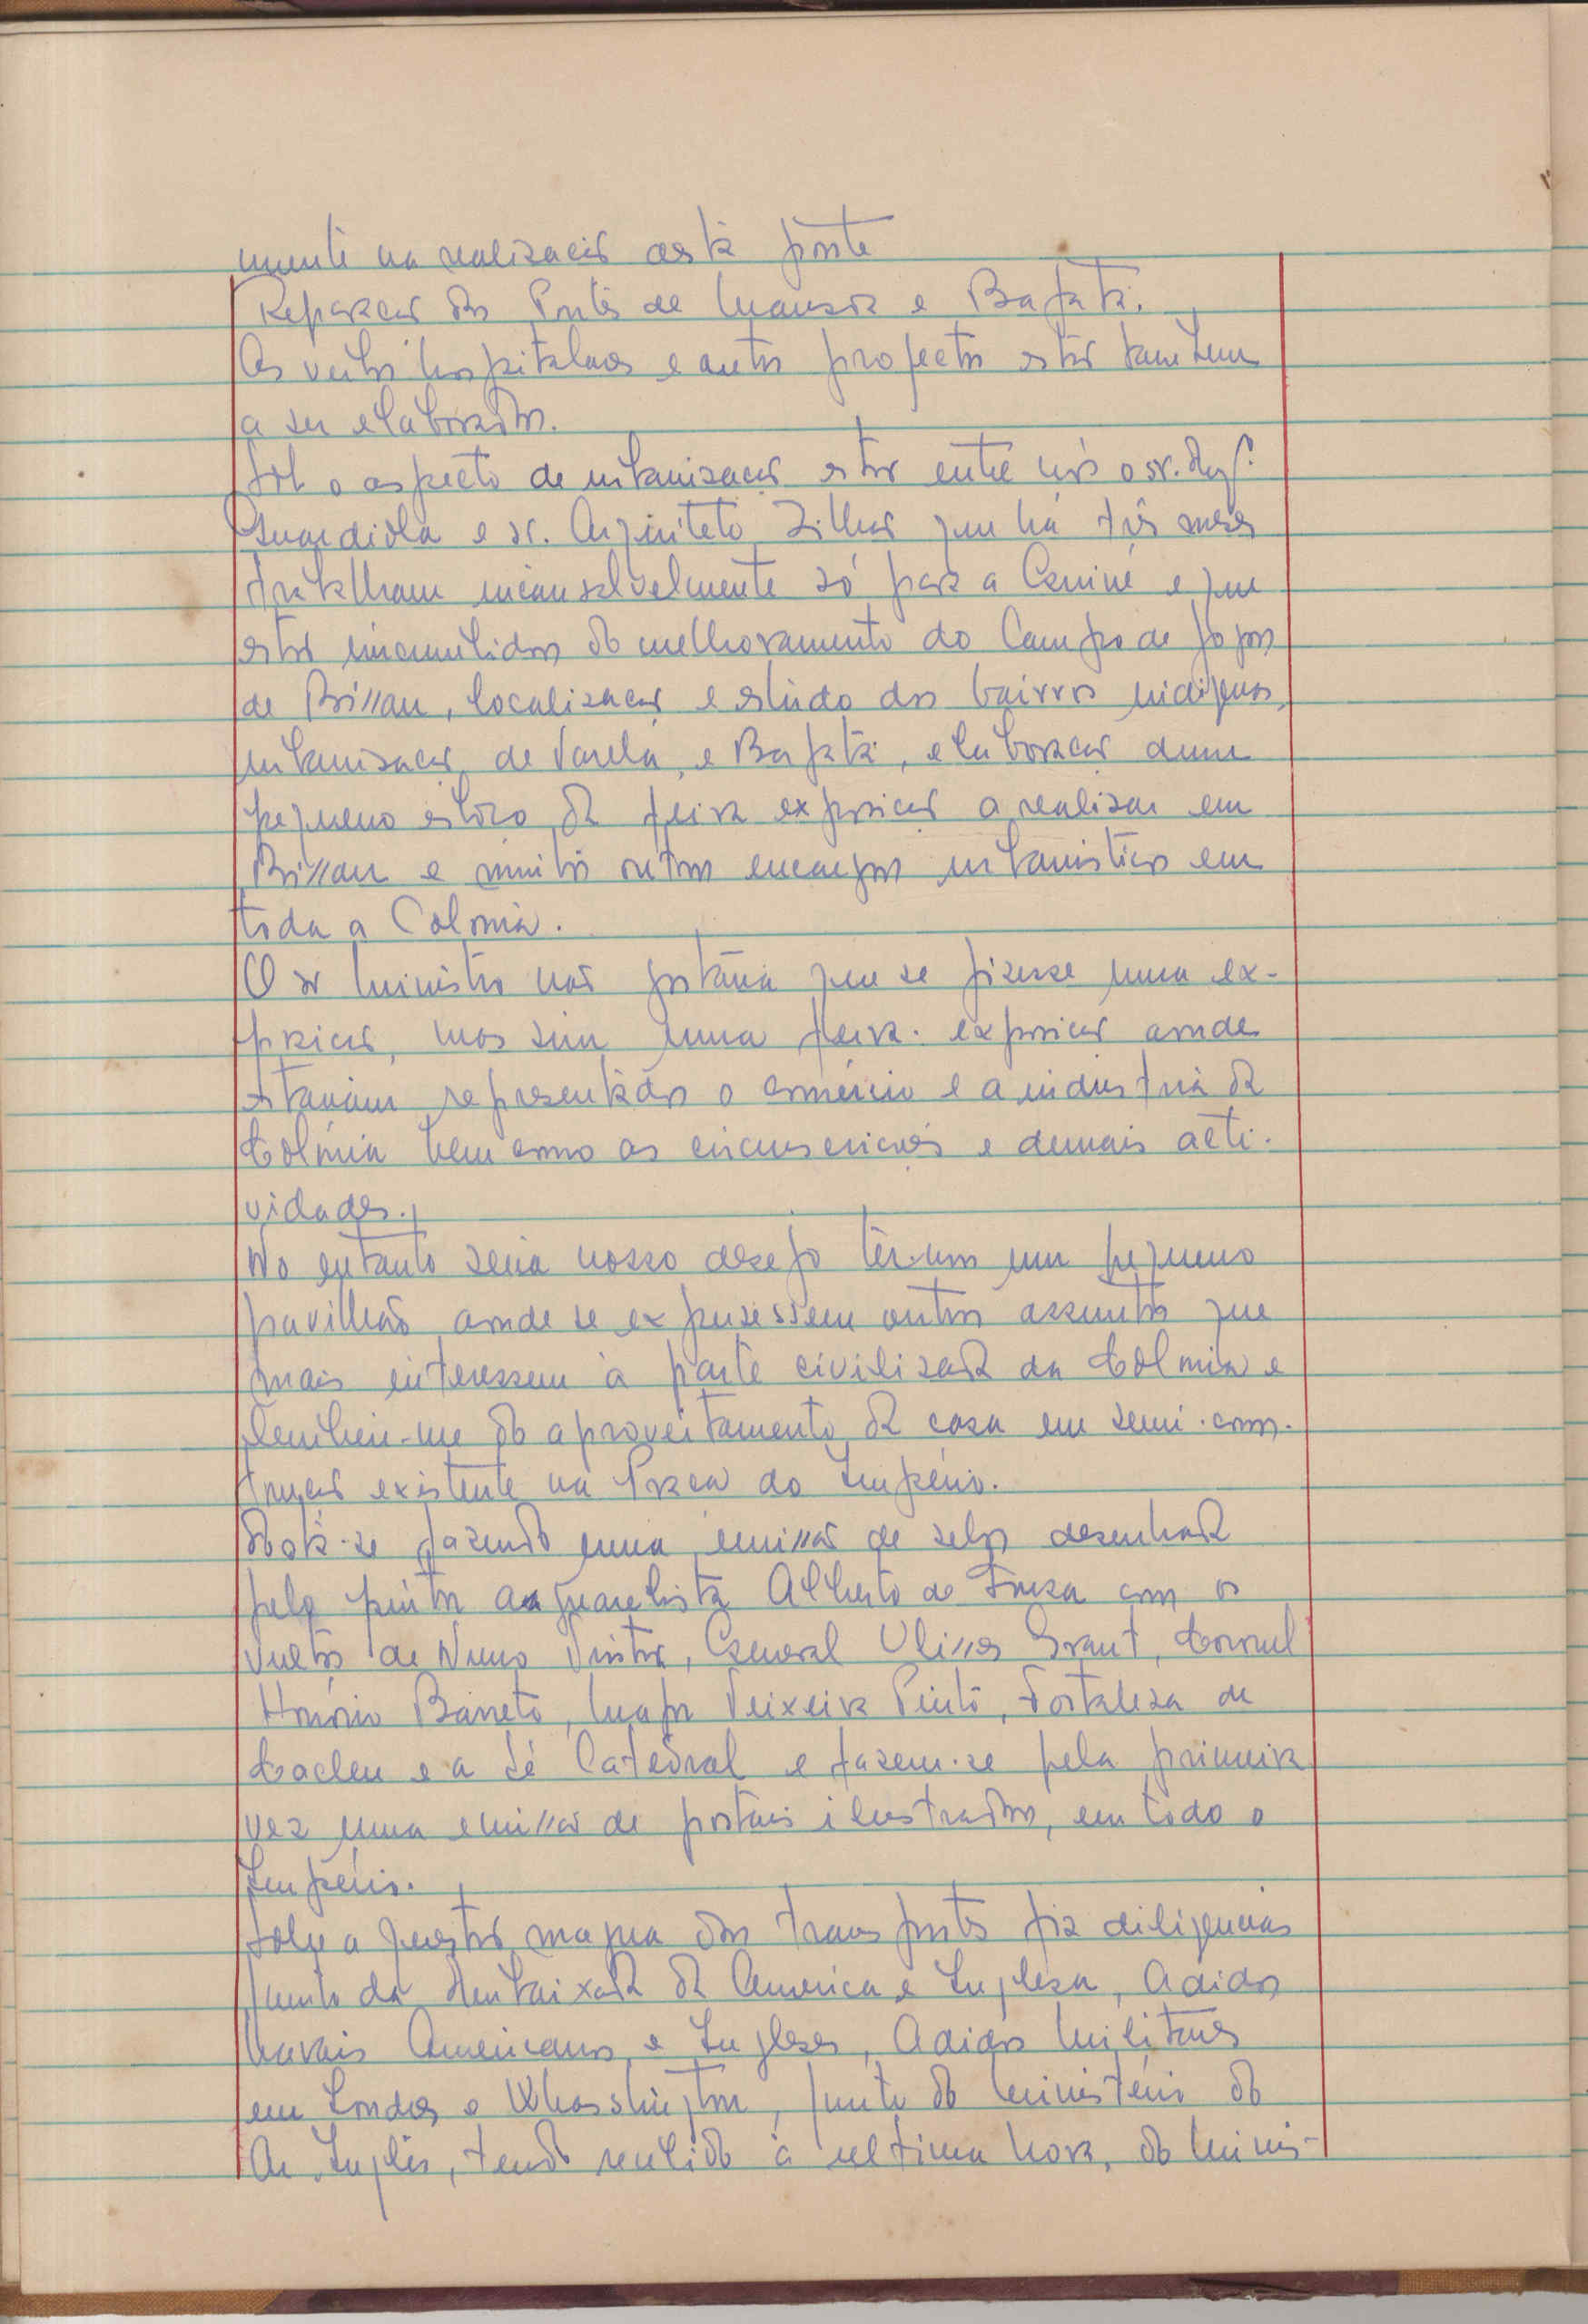 mente na realização desta ponte
Reparação das Pontes de Mansoa e Bafatá.
As verbas hospitalares e outros projectos estão tambem
a ser elaborados.
Sob o aspecto de urbanização estão entre nós o sr. Eng.º
Guardiola e sr. Arquiteto Zilhão que há três meses
trabalham incansavelmente só para a Guiné e que
estão incumbidos do melhoramento do Campo de Jogos
de Bissau, localização e estudo dos bairros indigenas,
urbanização de Varela, e Bafatá, elaboração dum
pequeno esboço da feira exposição a realizar em
Bissau e muitos outros encargos urbanisticos em
toda a Colonia.
O sr Ministro não gostaria que se fizesse uma ex-
posição, mas sim uma feira-exposição aonde
estariam representados o comércio e a industria da
Colónia bem como as circunscrições e demais acti-
vidades.
No entanto seria nosso desejo ter-mos um pequeno
pavilhão aonde se expusessem outros assuntos que
mais interessem à parte civilizada da Colonia e
lembrei-me do aproveitamento da casa em semi-cons-
trução existente na Praça do Império.
Está-se fazendo uma emissão de selos desenhada
pelo pintor aguarelista Alberto de Sousa com os
vultos de Nuno Tristão, General Ulisses Grant, Coronel
Honório Barreto, Major Teixeira Pinto, Fortaleza de
Cacheu e a Sé Catedral e fazem-se pela primeira
vez uma emissão de postais ilustrados, em todo o
Império.
Sobre a questão magna dos transportes fiz diligencias
junto da Embaixada da America e Inglesa, Adidos
Navais Americanos e Ingleses, Adidos Militares
em Londres e Whasshington, junto do Ministério do
Ar Inglês, tendo recebido à ultima hora, do Minis-